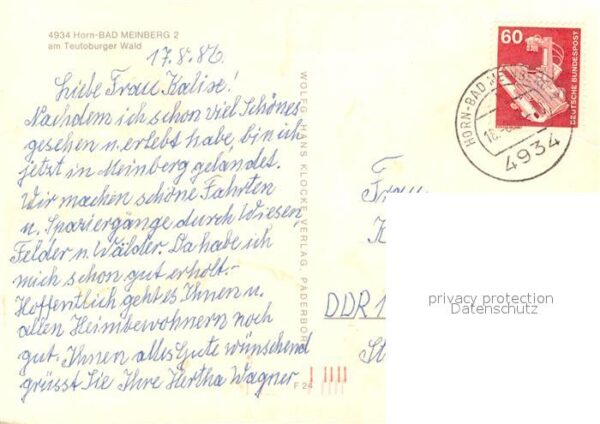 4934 Horn-BAD MEINBERG 2
am Teutoburger Wald
17.8.86.
Liebe Frau Kalise!
Nachdem ich schon viel Schönes
gesehen u. erlebt habe, bin ich
jetzt in Meinberg gelandet.
Wir machen schöne Fahrten
u. Spaziergänge durch Wiesen,
Felder u. Wälder. Da habe ich
mich schon gut erholt.-
Hoffentlich geht es Ihnen u.
allen Heimbewohnern noch
gut. Ihnen alles Gute wünschend
grüsst Sie Ihre Hertha Wagner
WOLFG. HANS KLOCKE VERLAG, PADERBOR
F 24
60
DEUTSCHE BUNDESPOST
HORN-BAD
18.
4934
Frau
K
DDR 1
St
privacy protection
Datenschutz